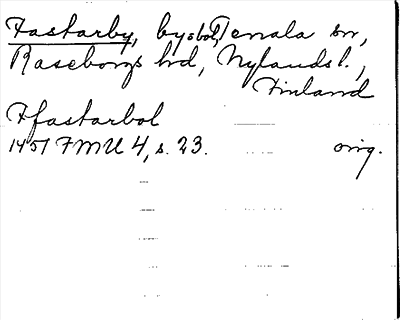 Fastarby, by o bol, Tenala sn,
Raseborgs hd, Nylands l.,
Finland
Ffastarbol
1451 FMU 4, s. 23. orig.